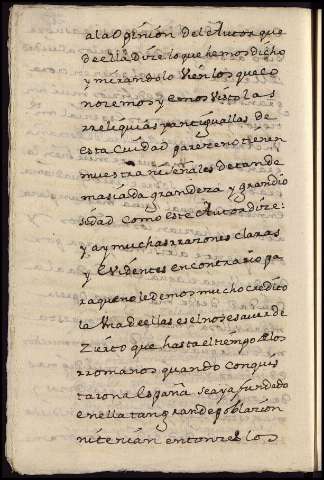 a la Opinion Del Autor que
de ella Dize lo que hemos dicho
y mirandolo vien los que co
nozemos y emos visto las
rreliquias y antiguallas de
esta Cuidad pareze no tienen
muestra ni senales de tan de
masiada grandeza y grandio
sedad como este Autor dize:
y ay muchas rrazones claras
y Evidentes en contrario pa
ra que no le demos mucho credito
la Una de ellas es el no se saver de
Zierto que hasta el tiempo de los
rromanos quando conquis
taron a España se aya fundado
en ella tan grande poblazion
ni tenian entonzes los